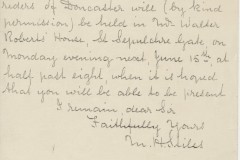 riders of Doncaster will (by kind
permission) be held in Mr. Walter
Roberts' House, St Sepulchre Gate, on
Monday evening next, June 15th, at
half past eight, when it is hoped
that you will be able to be present
I remain, dear Sir
Faithfully Yours
M.